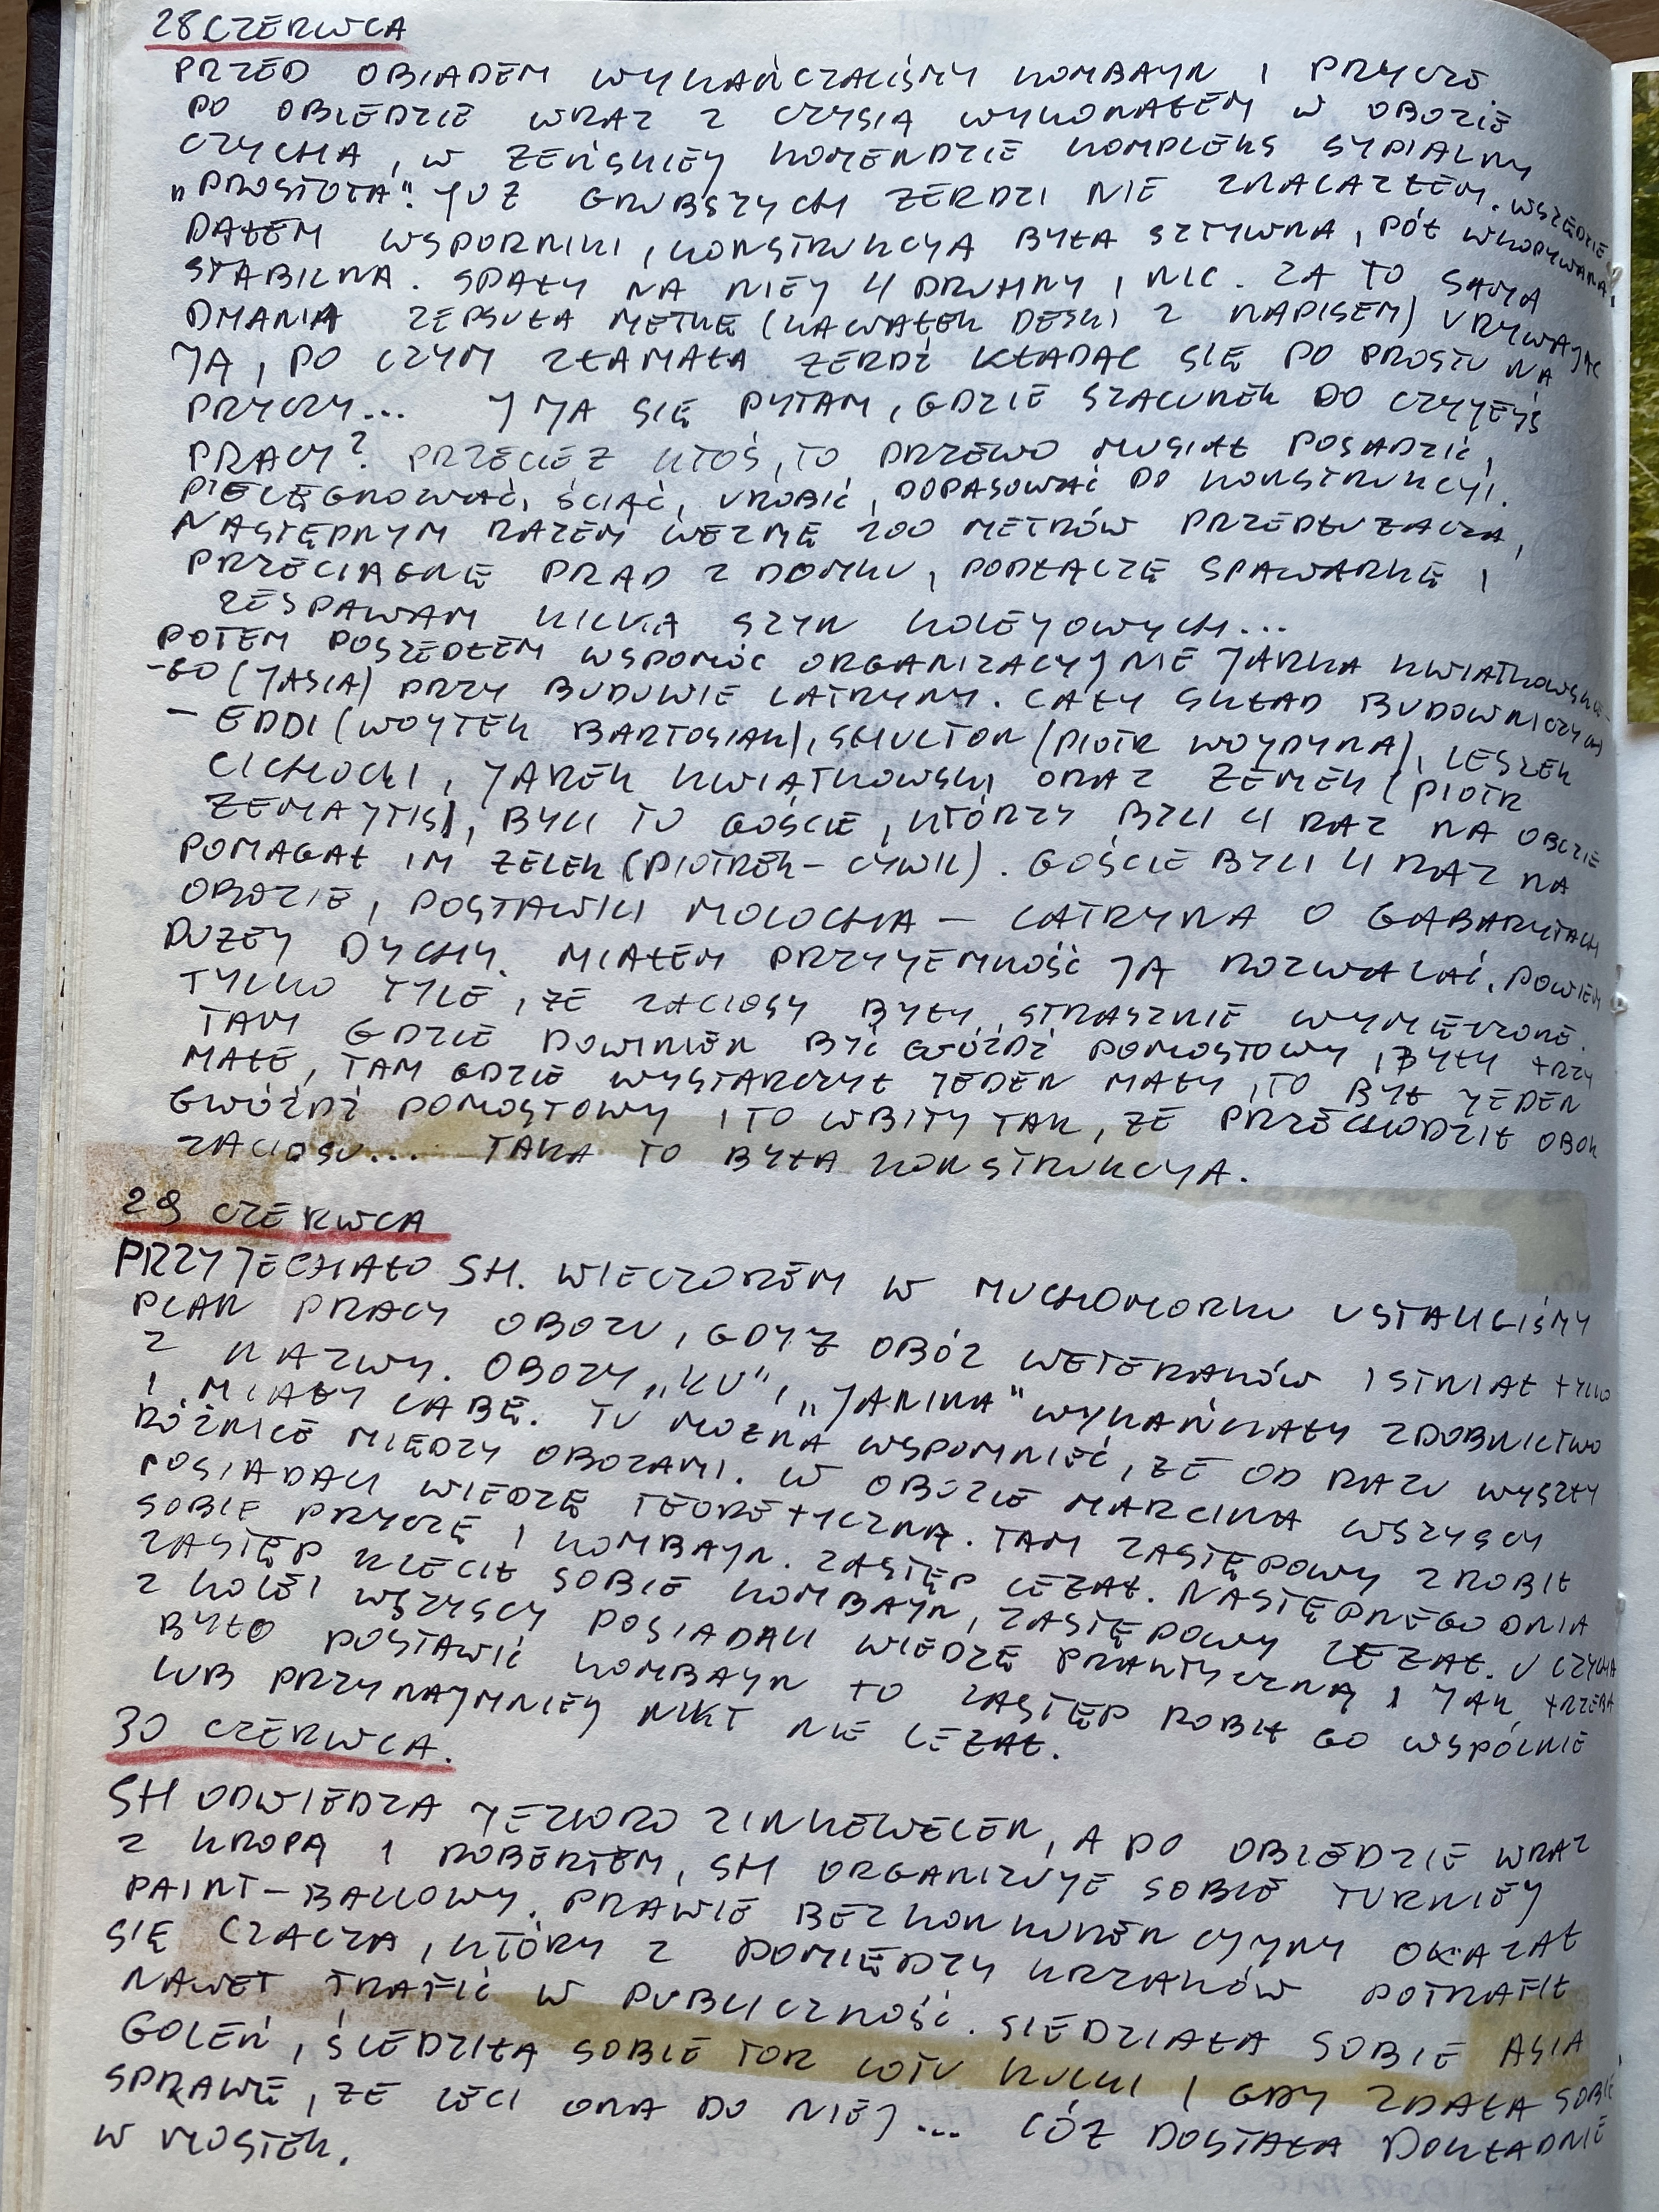 28 CZERWCA
PRZED OBIADEM WYKAŃCZALIŚMY KOMBAYN I PRYCZE
PO OBIEDZIE WRAZ Z CZYSIĄ WYKONAŁEM W OBOZIE
CZYCHA, W ŻEŃSKIEJ KOMENDZIE KOMPLEKS SYPIALNY
"PROSTOTA". JUŻ GRUBSZYCH ŻERDZI NIE ZNALAZŁEM. WSZĘDZIE
DAŁEM WSPORNIKI, KONSTRUKCJA BYŁA SZTYWNA, PÓŁ WKOPYWANA,
STABILNA. SPAŁY NA NIEJ 4 DRUHNY I NIC. ZA TO SAMA
DMANIA ZEPSUŁA METKĘ (KAWAŁEK DESKI Z NAPISEM) URYWAJĄC
JĄ, PO CZYM ZŁAMAŁA ŻERDŹ KŁADĄC SIĘ PO PROSTU NA
PRYCZY... I JA SIĘ PYTAM, GDZIE SZACUNEK DO CZYJEJŚ
PRACY? PRZECIEŻ KTOŚ, TO DRZEWO MUSIAŁ POSADZIĆ,
PIELĘGNOWAĆ, ŚCIĄĆ, UROBIĆ, DOPASOWAĆ DO KONSTRUKCJI.
NASTĘPNYM RAZEM WEZMĘ 200 METRÓW PRZEDŁUŻACZA,
PRZECIĄGNĘ PRĄD Z DOMKU, PODŁĄCZĘ SPAWARKĘ I
ZESPAWAM KILKA SZYN KOLEJOWYCH...
POTEM POSZEDŁEM WSPOMÓC ORGANIZACYJNIE JARKA KWIATKOWSKIE-
-GO (JASIA) PRZY BUDOWIE LATRYNY. CAŁY SKŁAD BUDOWNICZYCH
- EDDI (WOJTEK BARTOSIAK), SKULTON (PIOTR WOJDYNA), LESZEK
CICHOCKI, JAREK KWIATKOWSKI ORAZ ZEMEK (PIOTR
ZEMAJTIS), BYLI TO GOŚCIE, KTÓRZY BYLI 4 RAZ NA OBOZIE
POMAGAŁ IM ŻELEK (PIOTREK - CYWIL). GOŚCIE BYLI 4 RAZ NA
OBOZIE, POSTAWILI MOLOCHA - LATRYNA O GABARYTACH
DUŻEJ DYCHY. MIAŁEM PRZYJEMNOŚĆ JĄ ROZWALAĆ. POWIEM
TYLKO TYLE, ŻE ZACIOSY BYŁY STRASZNIE WYMĘCZONE.
TAM GDZIE POWINIEN BYĆ GWÓŹDŹ POMOSTOWY, BYŁY TRZY
MAŁE, TAM GDZIE WYSTARCZYŁ JEDEN MAŁY, TO BYŁ JEDEN
GWÓŹDŹ POMOSTOWY I TO WBITY TAK, ŻE PRZECHODZIŁ OBOK
ZACIOSU... TAKA TO BYŁA KONSTRUKCJA.
29 CZERWCA
PRZYJECHAŁO SH. WIECZOREM W MUCHOMORKU USTALILIŚMY
PLAN PRACY OBOZU, GDYŻ OBÓZ WETERANÓW ISTNIAŁ TYLKO
Z NAZWY. OBOZY "KU", "JANINA" WYKAŃCZAŁY ZDOBNICTWO
I MIAŁY LABĘ. TU MOŻNA WSPOMNIEĆ, ŻE OD RAZU WYSZŁY
RÓŻNICE MIĘDZY OBOZAMI. W OBOZIE MARCINA WSZYSCY
POSIADALI WIEDZĘ TEORETYCZNĄ. TAM ZASTĘPOWY ZROBIŁ
SOBIE PRYCZĘ I KOMBAYN. ZASTĘP LEŻAŁ. NASTĘPNEGO DNIA
ZASTĘP KLECIŁ SOBIE KOMBAYN, ZASTĘPOWY LEŻAŁ. U CZYCHA
Z KOLEI WSZYSCY POSIADALI WIEDZĘ PRAKTYCZNĄ I JAK TRZEBA
BYŁO POSTAWIĆ KOMBAYN TO ZASTĘP ROBIŁ GO WSPÓLNIE
LUB PRZYNAJMNIEJ NIKT NIE LEŻAŁ.
30 CZERWCA.
SH ODWIEDZA JEZIORO ZINKEWELEN, A PO OBIEDZIE WRAZ
Z KROPĄ I ROBERTEM, SH ORGANIZUJE SOBIE TURNIEJ
PAINT-BALLOWY. PRAWIE BEZKONKURENCYJNY OKAZAŁ
SIĘ CZACZA, KTÓRY Z POMIĘDZY KRZAKÓW POTRAFIŁ
NAWET TRAFIĆ W PUBLICZNOŚĆ. SIEDZIAŁA SOBIE ASIA
GOLEŃ, ŚLEDZIŁA SOBIE TOR LOTU KULKI I GDY ZDAŁA SOBIE
SPRAWĘ, ŻE LECI ONA DO NIEJ... CÓŻ DOSTAŁA DOKŁADNIE
W MOSTEK.